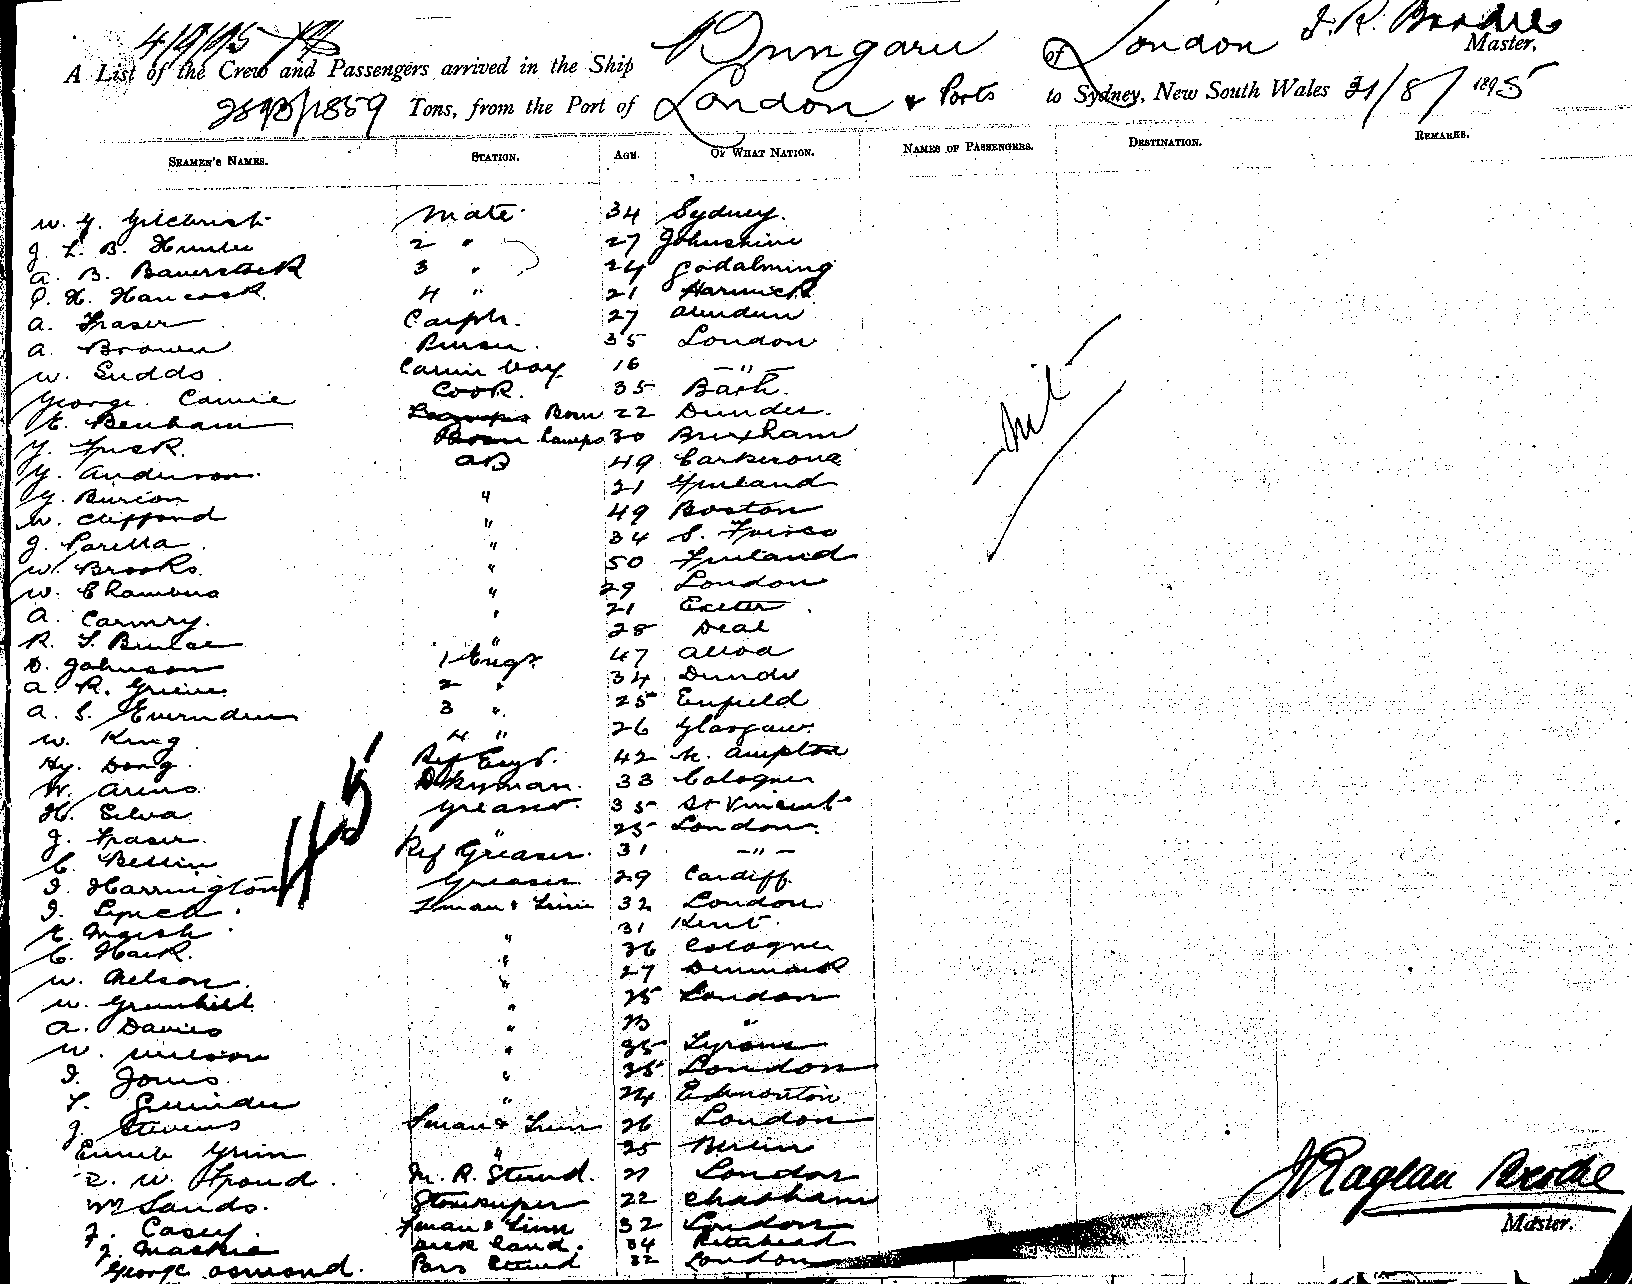 4/9/95
A List of the Crew and Passengers arrived in the Ship Bungaree of London J. R. Brodie Master,
2893/1859 Tons, from the Port of London & Ports to Sydney, New South Wales 31/8/ 1895
SEAMEN'S NAMES. STATION. AGE. OF WHAT NATION. NAMES OF PASSENGERS. DESTINATION. REMARKS.
W. G. Gilchrist Mate 34 Sydney.
J. L. B. Hunter 2 " 27 Johnshine
A. B. Baverstock 3 " 24 Godalming
P. H. Hancock. 4 " 21 Harwich
A. Fraser Carptr. 27 Aberdeen
A. Brown Purser. 35 London
W. Sudds. Cabin boy 16 — " —
George. Cairnie Cook. 35 Bath.
E. Benham 22 Dundee.
J. Tuck. Lamps 30 Brixham
G. Anderson. AB 49
G. Burion " 21 Finland
W. Clifford " 49 Boston
J. Parella. " 34 S. Frisco
W. Brooks. " 50 Finland
W. Chambers " 29 London
A. Carmry. " 21 Exeter.
R. S. " 28 Deal
D. Johnson 1 Engr 47 Alloa
A. R. Grieve 2 " 34 Dundee
A. S. Evernden 3 " 25 Enfield
W. King 4 " 26 Glasgow.
Hy. Dong. Ref Engr. 42 N. Ampton
W. Arens. Dkyman. 33 Cologne
H. Silva Greaser. 35 St Vincent
J. Fraser. " 25 London.
C. Bellin Ref Greaser. 31 — " —
J. Harrington Greaser 29 Cardiff
J. Lynch. Fman & Trim 32 London
E. " 31 Kent.
C. Hack. " 36 Cologne
W. Nelson. " 27 Denmark
W. Greenhill " 25 London
A. Davies " 23 "
W. Wilson " 35
J. Jones " 35 London
T. " 24 Edmonton
J. Stevens Fman & Trim 26 London
Grim " 25 Berlin
W. Stroud. M. R. Stewd. 21 London
Wm Sands. Storekeeper 22 Chatham
J. Casey. Fman & Trim 32 London
J. Mackie 34
George Osmond. Stewd 32 London
45
Nil
J Raglan Brodie
Master.